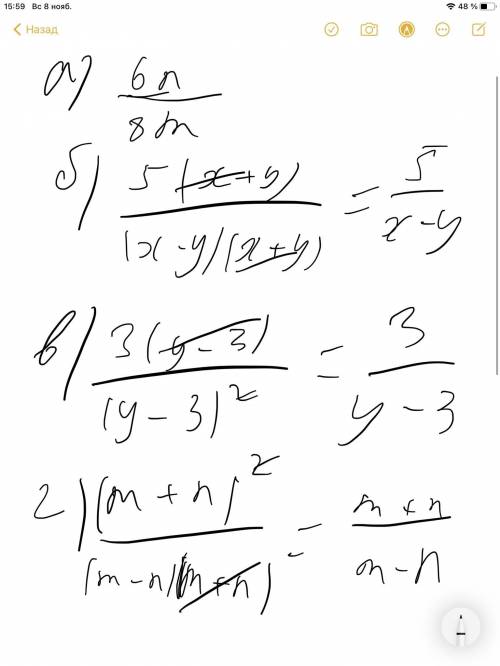 15:59 Вс 8 нояб. 48 %
Назад
а) 6n/8m
б) 5(x+y)/(x-y)(x+y) = 5/x-y
в) 3(y-3)/(y-3)² = 3/y-3
г) (m+n)²/(m-n)(m+n) = m+n/m-n